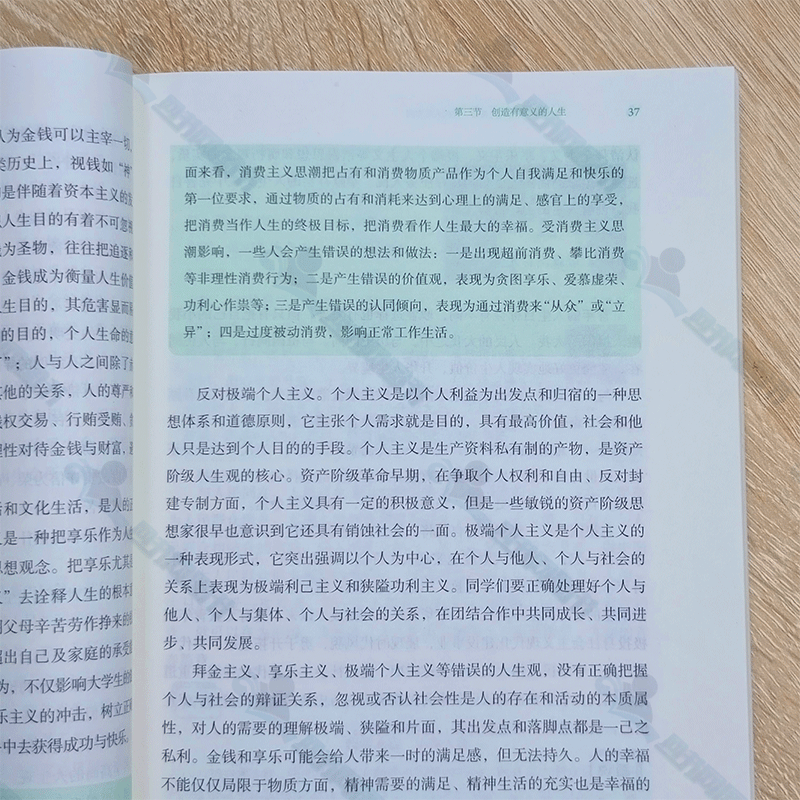 人为金钱可以主宰一切
类历史上，视钱如“神”
是伴随着资本主义的
人生目的有着不可忽
为圣物，往往把追逐
金钱成为衡量人生价值
人生目的，其危害显而
的目的，个人生命的意
”；人与人之间除了
其他的关系，人的尊严
权交易、行贿受贿、
理性对待金钱与财富，
和文化生活，是人的正
是一种把享乐作为人
思想观念。把享乐尤其
”去诠释人生的根本
父母辛苦劳作挣来的
超出自己及家庭的承受
为，不仅影响大学生的
乐主义的冲击，树立正
中去获得成功与快乐。
第三节 创造有意义的人生 37
面来看，消费主义思潮把占有和消费物质产品作为个人自我满足和快乐的
第一位要求，通过物质的占有和消耗来达到心理上的满足、感官上的享受，
把消费当作人生的终极目标，把消费看作人生最大的幸福。受消费主义思
潮影响，一些人会产生错误的想法和做法：一是出现超前消费、攀比消费
等非理性消费行为；二是产生错误的价值观，表现为贪图享乐、爱慕虚荣、
功利心作祟等；三是产生错误的认同倾向，表现为通过消费来“从众”或“立
异”；四是过度被动消费，影响正常工作生活。
反对极端个人主义。个人主义是以个人利益为出发点和归宿的一种思
想体系和道德原则，它主张个人需求就是目的，具有最高价值，社会和他
人只是达到个人目的的手段。个人主义是生产资料私有制的产物，是资产
阶级人生观的核心。资产阶级革命早期，在争取个人权利和自由、反对封
建专制方面，个人主义具有一定的积极意义，但是一些敏锐的资产阶级思
想家很早也意识到它还具有销蚀社会的一面。极端个人主义是个人主义的
一种表现形式，它突出强调以个人为中心，在个人与他人、个人与社会的
关系上表现为极端利己主义和狭隘功利主义。同学们要正确处理好个人与
他人、个人与集体、个人与社会的关系，在团结合作中共同成长、共同进
步、共同发展。
拜金主义、享乐主义、极端个人主义等错误的人生观，没有正确把握
个人与社会的辩证关系，忽视或否认社会性是人的存在和活动的本质属
性，对人的需要的理解极端、狭隘和片面，其出发点和落脚点都是一己之
私利。金钱和享乐可能会给人带来一时的满足感，但无法持久。人的幸福
不能仅仅局限于物质方面，精神需要的满足、精神生活的充实也是幸福的